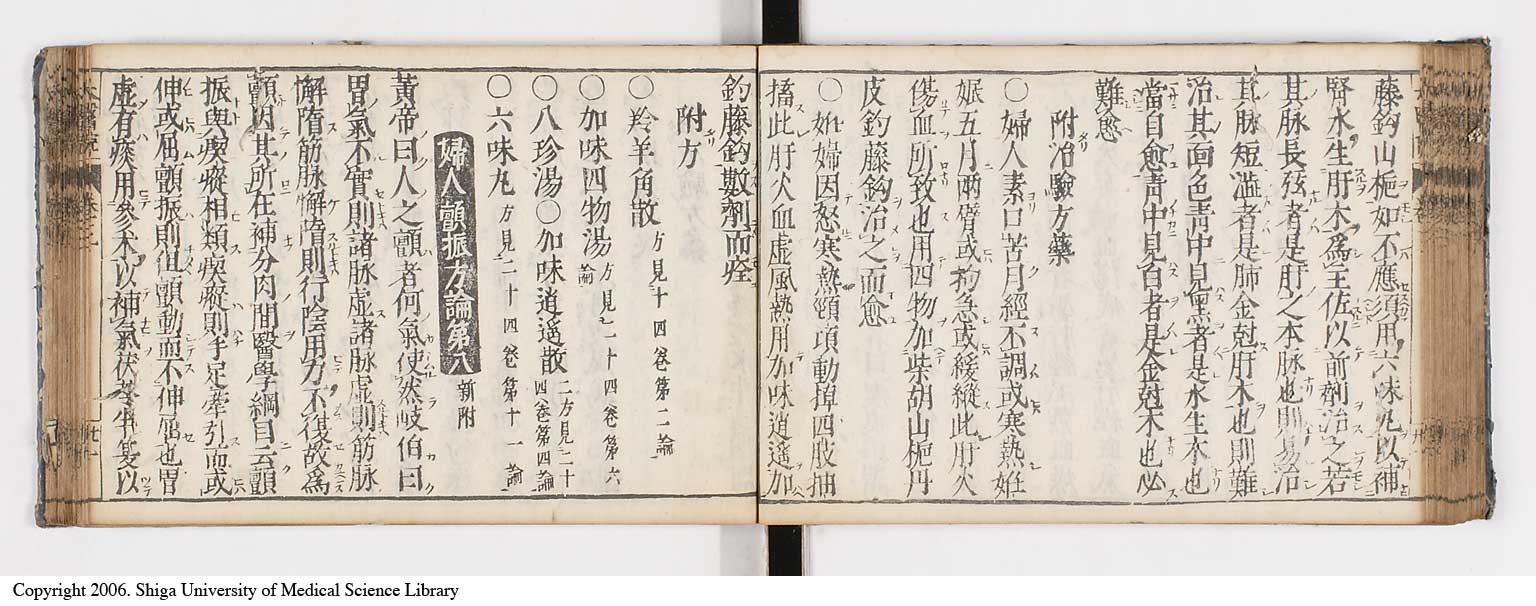 藤鈎山梔如不應須用六味丸以補
腎水生肝木為主佐以前劑治之若
其脉長弦者是肝之本脉也則易治
其脉短澁者是肺金尅肝木也則難
治其面色青中見黒者是水生木也
當自愈青中見白者是金尅木也必
難愈
附治驗方藥
〇婦人素口苦月經不調或寒熱姙
娠五月兩臂或拘急或緩縱此肝火
傷血所致也用四物加柴胡山梔丹
皮釣藤鈎治之而愈
〇姙婦因怒寒熱頸項動掉四肢抽
搐此肝火血虚風熱用加味逍遥加
釣藤鈎數劑而痊
附方
〇羚羊角散方見十四卷第二論
〇加味四物湯方見二十四卷第六論
〇八珍湯〇加味逍遥散二方見二十四卷第四論
〇六味丸方見二十四卷第十一論
婦人顫振方論第八 新附
黄帝曰人之顫者何氣使然岐伯曰
胃氣不實則諸脉虚諸脉虚則筋脉
懈惰筋脉懈惰則行陰用力不復故為
顫因其所在補分肉間醫學綱目云顫
振與瘈瘲相類瘈瘲則手足牽引而或
伸或屈顫振則但顫動而不伸屈也胃
虚有痰用參术以補氣茯苓半夏以
卷三
Copyright 2006. Shiga University of Medical Science Library